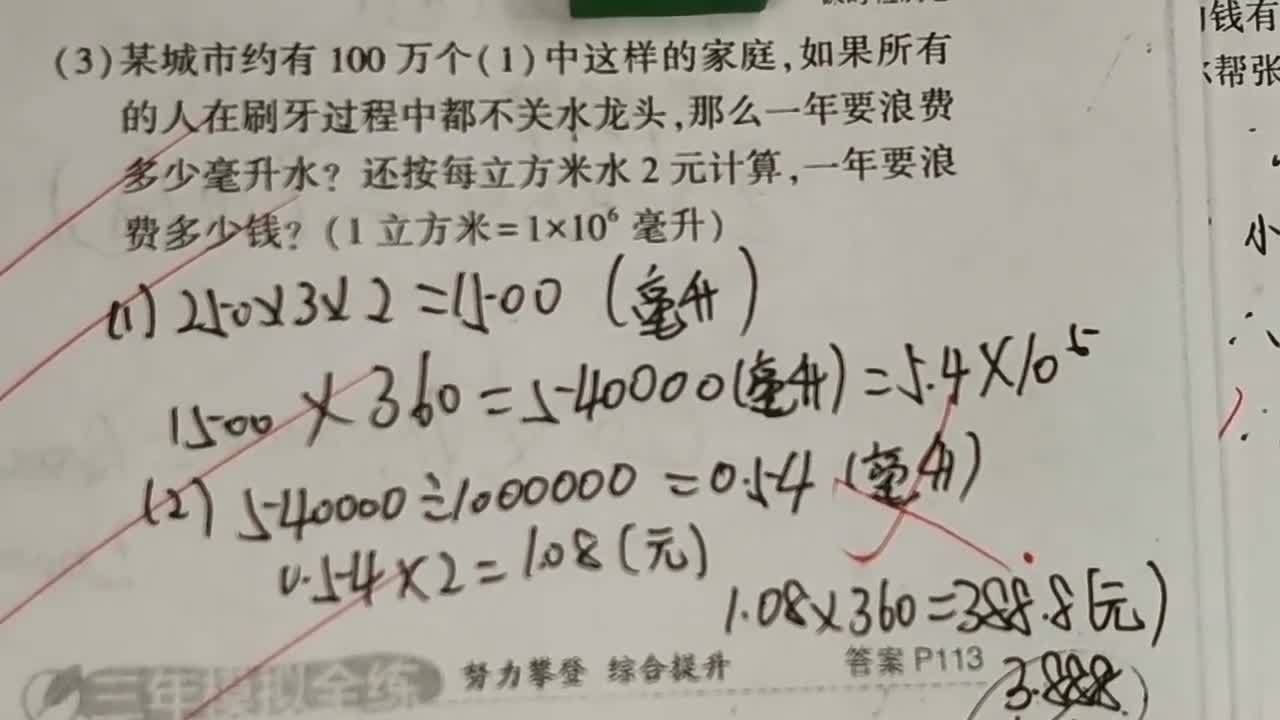 (3)某城市约有100万个(1)中这样的家庭,如果所有
的人在刷牙过程中都不关水龙头,那么一年要浪费
多少毫升水? 还按每立方米水2元计算,一年要浪
费多少钱? (1立方米=1×10⁶ 毫升)
(1) 250×3×2=1500 (毫升)
1500×360=540000(毫升)=5.4×10⁵
(2) 540000÷1000000=0.54 (毫升)
0.54×2=1.08(元)
1.08×360=388.8(元)
3.888
三年模拟全练 努力攀登 综合提升 答案P113
钱有
帮张
小